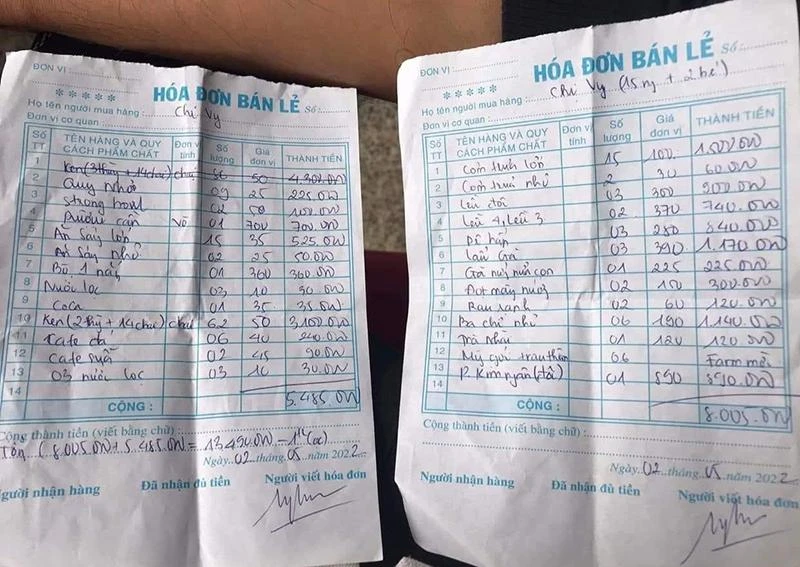 HÓA ĐƠN BÁN LẺ Số:
ĐƠN VỊ :
* * * * *
Họ tên người mua hàng : Chị Vy
Đơn vị cơ quan :
Số TT TÊN HÀNG VÀ QUY CÁCH PHẨM CHẤT Đơn vị tính Số lượng Giá đơn vị THÀNH TIỀN
1 Ken (3 thùng + 14 chai) chai 86 50 4.300.000
2 Quy nhỏ 09 25 225.000
3 Strong bowl 02 50 100.000
4 Rượu cần Vò 01 700 700.000
5 Ăn sáng lớn 15 35 525.000
6 Ăn sáng nhỏ 02 25 50.000
7 Bò 1 nắng 01 360 360.000
8 Nước lọc 03 10 30.000
9 CoCa 01 35 35.000
10 Ken (2 thg + 14 chai) chai 62 50 3.100.000
11 Cafe đá 06 40 240.000
12 Cafe sữa 02 45 90.000
13 03 nước lọc 03 10 30.000
14
CỘNG : 5.485.000
Cộng thành tiền (viết bằng chữ) :
(8.005.000 + 5.485.000 = 13.490.000
Ngày..02..tháng..05..năm 2022
Người nhận hàng Đã nhận đủ tiền Người viết hóa đơn
HÓA ĐƠN BÁN LẺ Số:
ĐƠN VỊ :
* * * * *
Họ tên người mua hàng : Chị Vy (15 ng + 2 bé)
Đơn vị cơ quan :
Số TT TÊN HÀNG VÀ QUY CÁCH PHẨM CHẤT Đơn vị tính Số lượng Giá đơn vị THÀNH TIỀN
1 Cơm trưa lớn 15 100 1.500.000
2 Cơm trưa nhỏ 2 30 60.000
3 Lều đôi 03 300 900.000
4 Lều 4, Lều 3 02 370 740.000
5 Dê hấp 03 280 840.000
6 Lẩu Gà 03 390 1.170.000
7 Gà 01 225 225.000
8 Đọt mây nướng 02 150 300.000
9 Rau xanh 02 60 120.000
10 Ba chỉ 06 190 1.140.000
11 01 120 120.000
12 Mỳ gói 06 Farm mời
13 (tối) 01 890 890.000
14
CỘNG : 8.005.000
Cộng thành tiền (viết bằng chữ) :
Ngày..02..tháng..05..năm 2022
Người nhận hàng Đã nhận đủ tiền Người viết hóa đơn